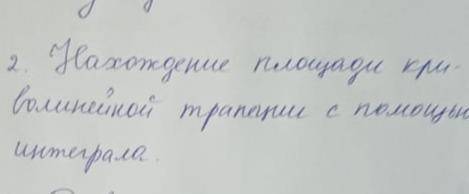 2. Нахождение площади кри-
волинейной трапеции с помощью
интеграла.